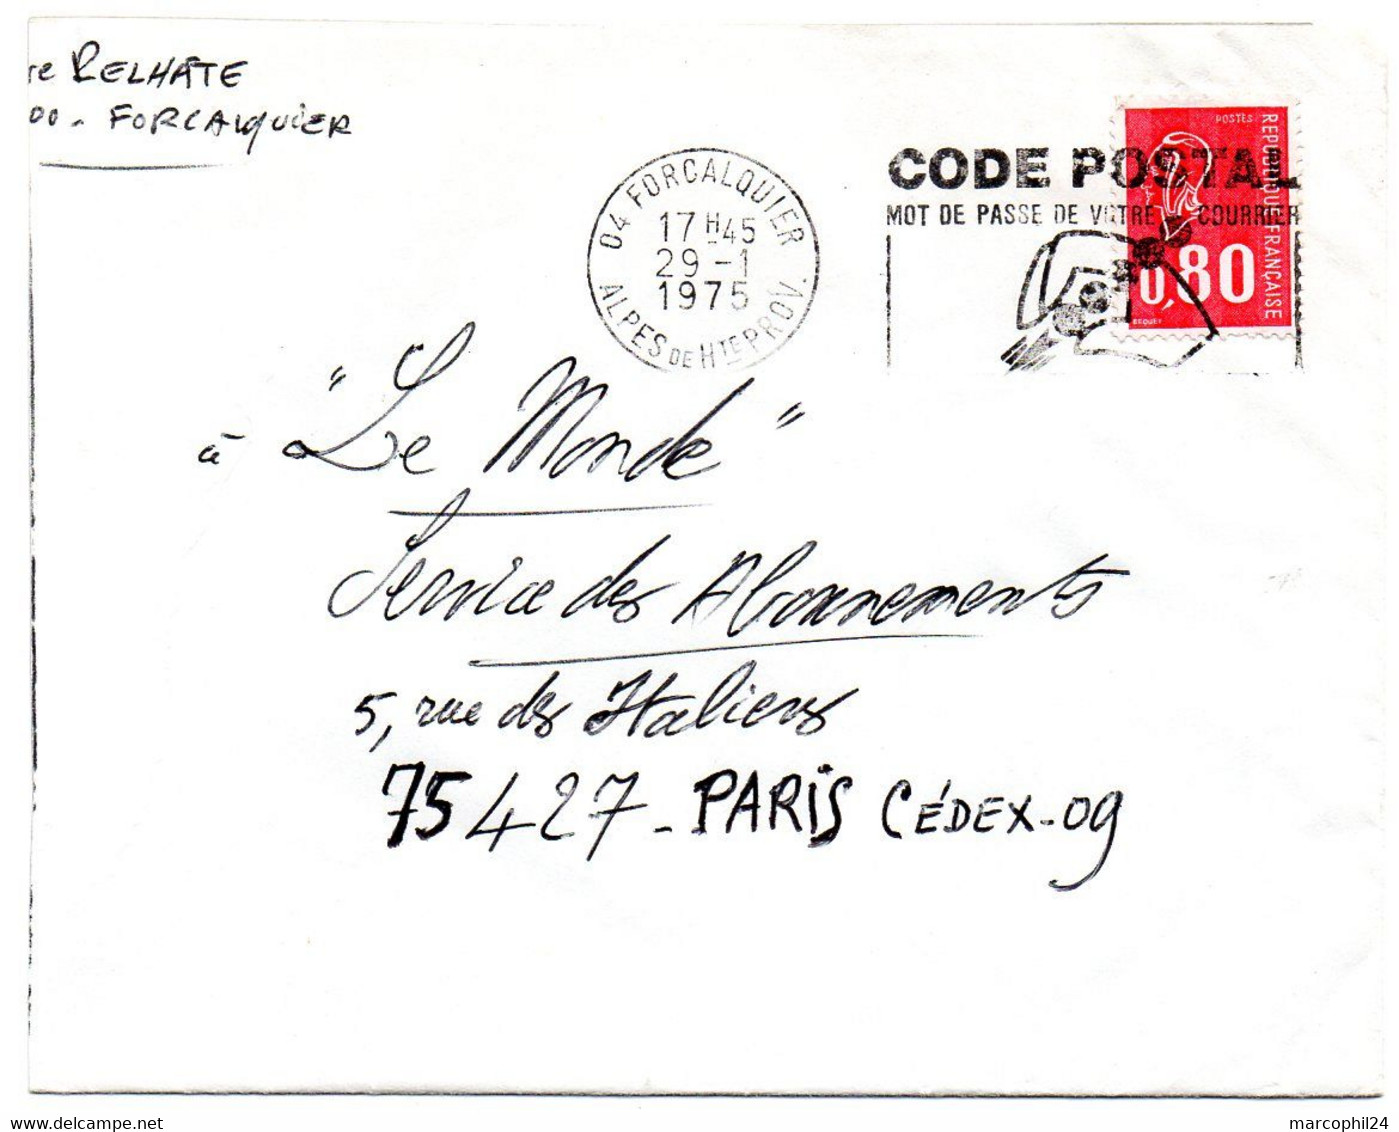 te RELHATE
00 - FORCALQUIER
04 FORCALQUIER
17 H 45
29 - 1
1975
ALPES DE Hte PROV.
CODE POSTAL
MOT DE PASSE DE VOTRE COURRIER
POSTES
REPUBLIQUE FRANÇAISE
0,80
BEQUET
à "Le Monde"
Service des Abonnements
5, rue des Italiens
75427 - PARIS CÉDEX - 09
www.delcampe.net
marcophil24